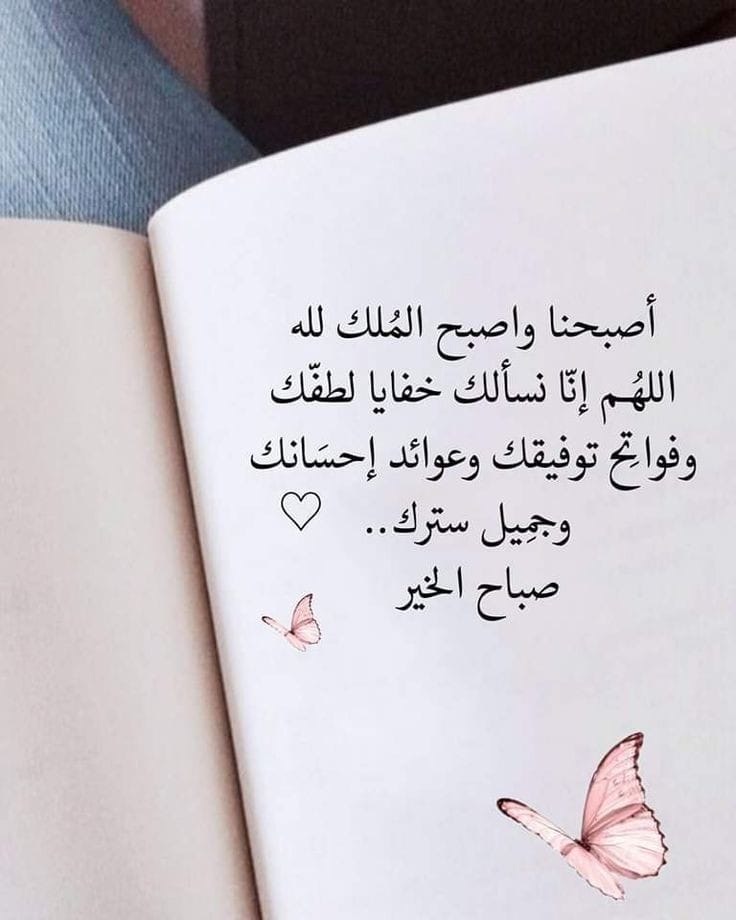 أصبحنا واصبح المُلك لله
اللهُم إنّا نسألك خفايا لطفّك
وفواتِح توفيقك وعوائد إحسَانك
وجمِيل سترك.. ♡
صباح الخير